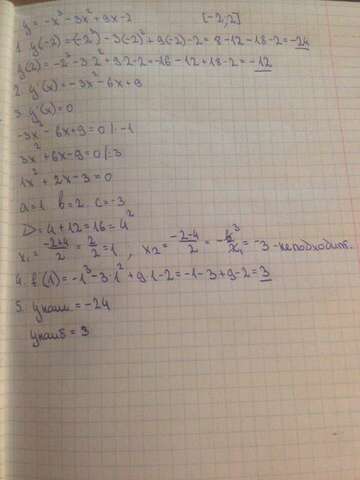 y = -x³ - 3x² + 9x - 2 [-2;2]
1. y(-2) = (-2³) - 3(-2)² + 9(-2) - 2 = 8 - 12 - 18 - 2 = -24
y(2) = -2³ - 3·2² + 9·2 - 2 = -16 - 12 + 18 - 2 = -12
2. y'(x) = -3x² - 6x + 9
3. y'(x) = 0
-3x² - 6x + 9 = 0 |: -1
3x² + 6x - 9 = 0 |:3
1x² + 2x - 3 = 0
a = 1 b = 2 c = -3
D = 4 + 12 = 16 = 4²
x₁ = (-2+4)/2 = 2/2 = 1, x₂ = (-2-4)/2 = = -3 - не подходит.
4. f(1) = -1³ - 3·1² + 9·1 - 2 = -1 - 3 + 9 - 2 = 3
5. y наим = -24
y наиб = 3